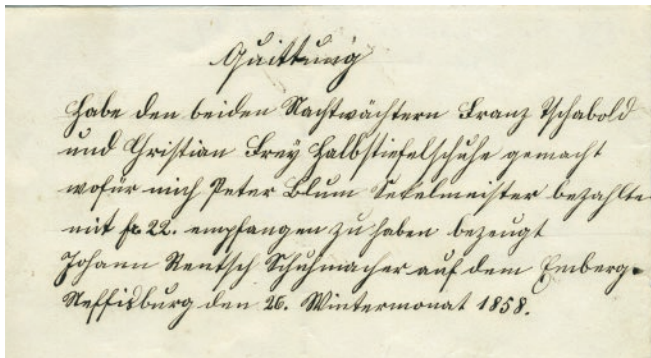 Quittung
Habe den beiden Nachtwächtern Franz Tschabold
und Christian Frey Halbstiefelschuhe gemacht
wofür mich Peter Blum Sekelmeister bezahlte
mit fr 22. empfangen zu haben bezeugt
Johann Rentsch Schuhmacher auf dem Emberg.
Steffisburg den 26. Wintermonat 1858.